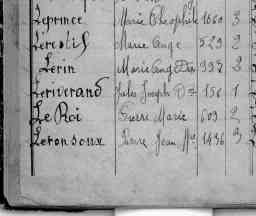 Leprince Marie Théophile 1660 3
Lerestif Marie Ange 529 2
Lerin Marie Ange 998 2
Leriverand Jules Joseph 156 1
Le Roi Pierre Marie 609 2
Leronsoux Pierre Jean Mie 1436 3